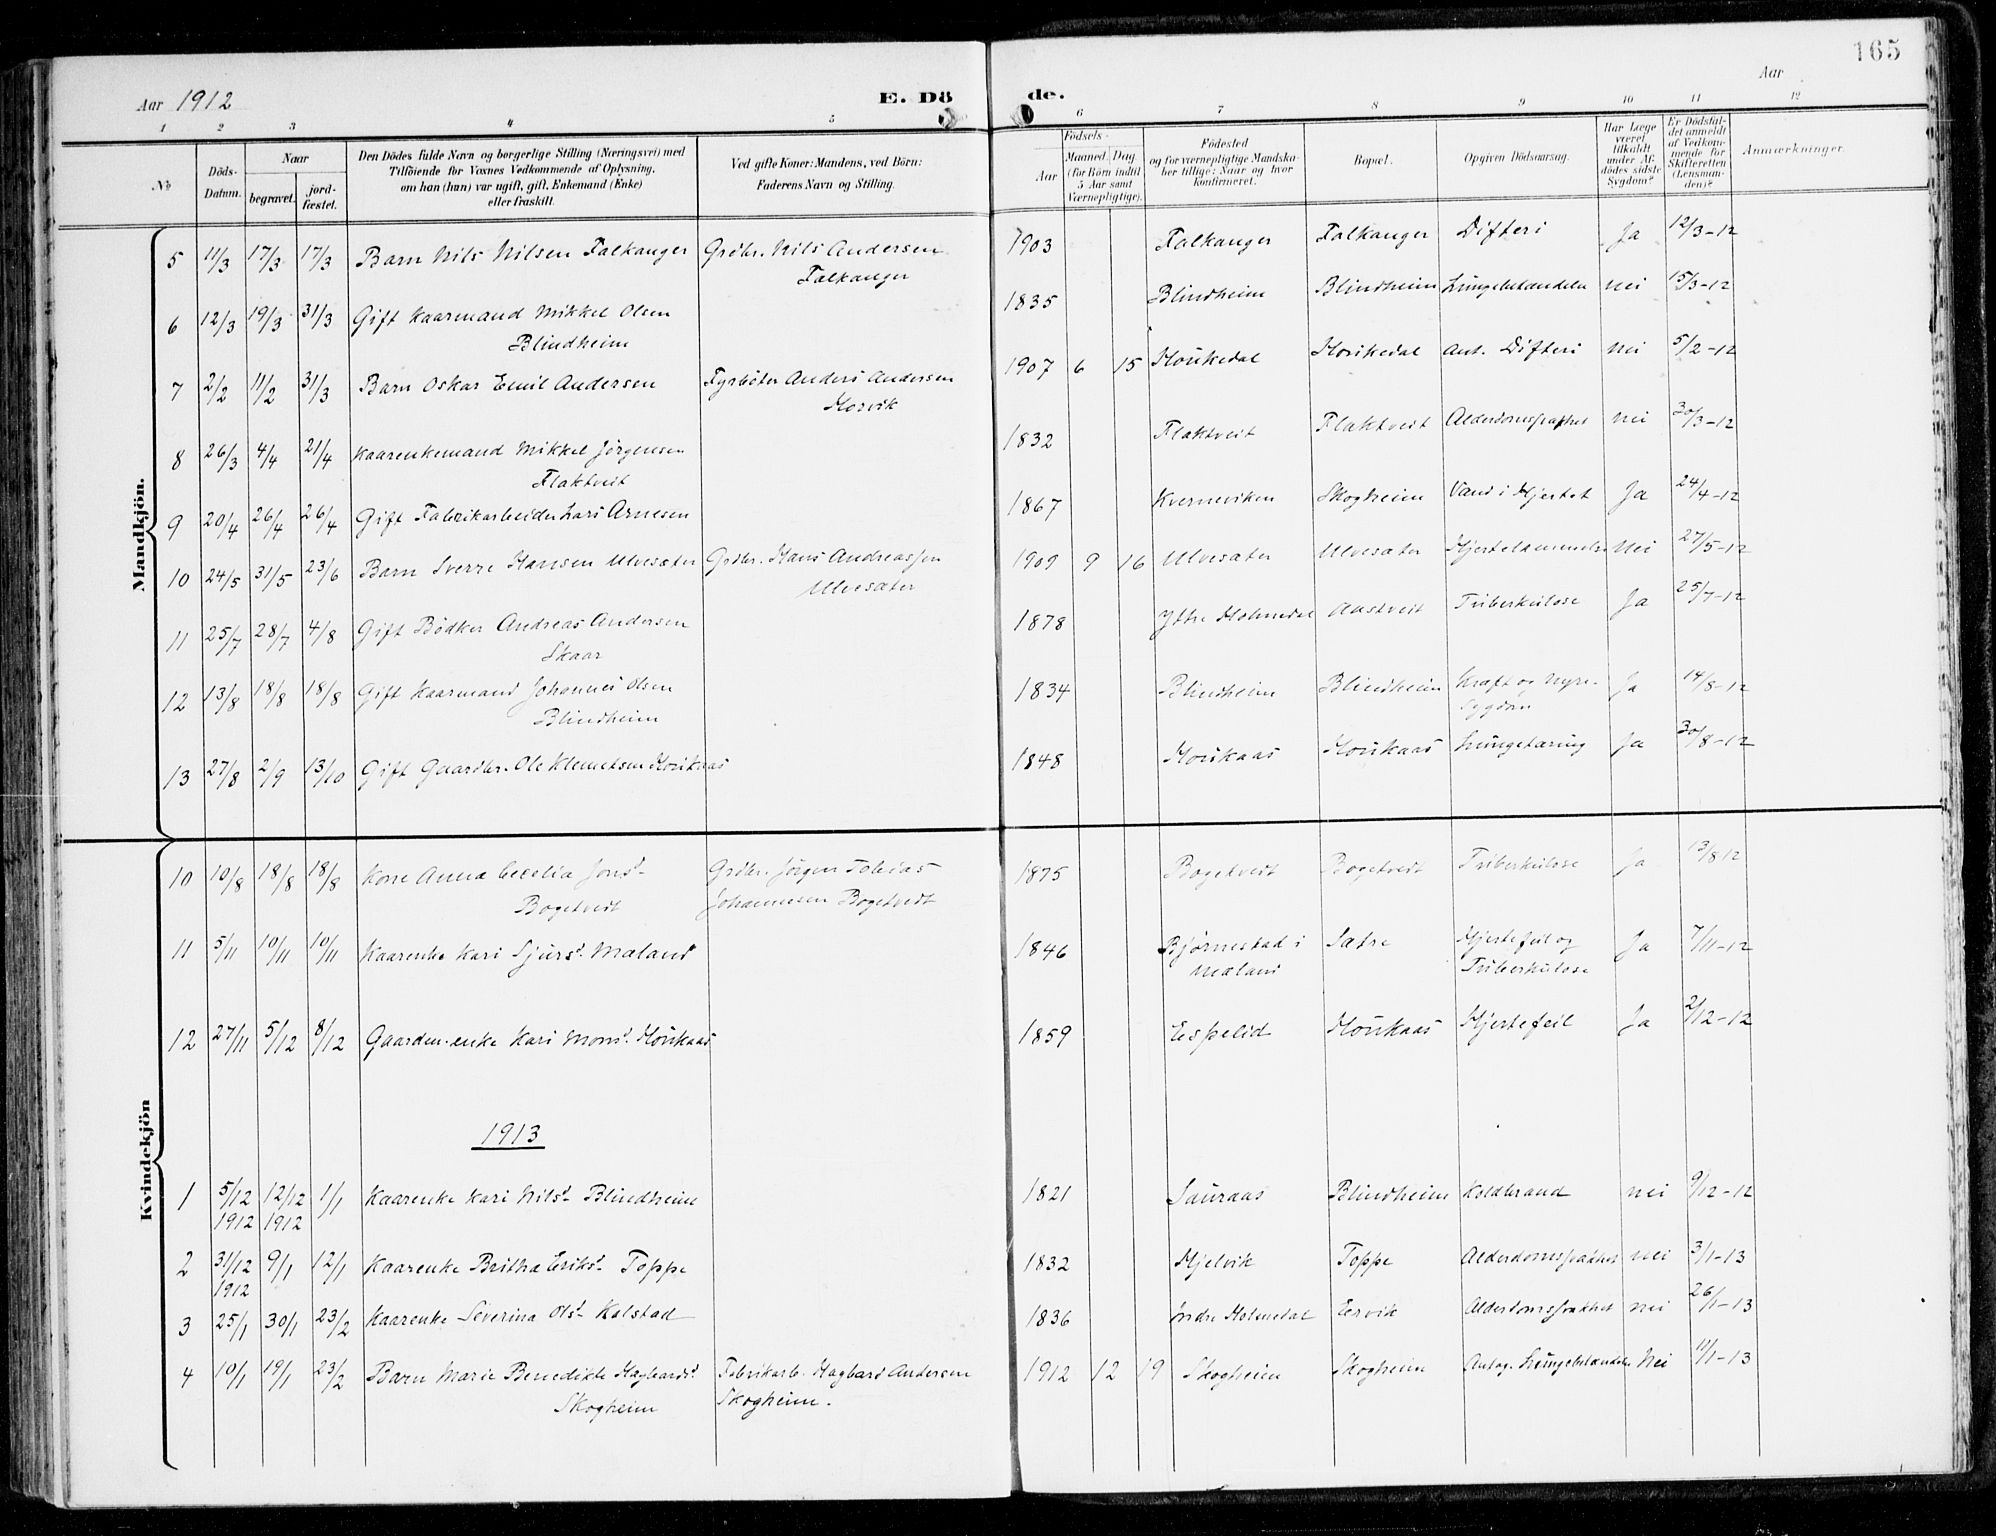 165
Aar 1912 E. Dö de. Aar
1 2 3 4 5 6 7 8 9 10 11 12
№ Döds-Datum. Naar begravet. jord-fæstet.
Den Dödes fulde Navn og borgerlige Stilling (Næringsvei) med
Tilföiende for Voxnes Vedkommende af Oplysning,
om han (hun) var ugift, gift, Enkemand (Enke)
eller fraskilt.
Ved gifte Koner: Mandens, ved Börn:
Faderens Navn og Stilling.
Födsels-
Aar Maaned. Dag
(for Börn indtil
5 Aar samt
Værnepligtige).
Födested
og for værnepligtige Mandska-
ber tillige: Naar og hvor
konfirmeret.
Bopæl.
Opgiven Dödsaarsag.
Har Læge
været
tilkaldt
under Af-
dödes sidste
Sygdom?
Er Dödsfal-
det anmeldt
af Vedkom-
mende for
Skifteretten
(Lensman-
den)?
Anmærkninger.
Mandkjön.
5 11/3 17/3 17/3 Barn Nils Nilsen Falkanger Grdbr. Nils Andersen 1903 Falkanger Falkanger Difteri Ja 12/3-12
Falkanger
6 12/3 19/3 31/3 Gift Kaarmand Mikkel Olsen 1835 Blindheim Blindheim Lungebetændelse nei 15/3-12
Blindheim
7 2/2 11/2 31/3 Barn Oskar Emil Andersen Fyrböter Anders Andersen 1907 6 15 Houkedal Houkedal Ant. Difteri nei 5/2-12
Horvik
8 26/3 4/4 21/4 Kaarenkemand Mikkel Jörgensen 1832 Flaktveit Flaktveit Alderdomssvakhet nei 30/3-12
Flaktveit
9 20/4 26/4 26/4 Gift Fabrikarbeider Lars Arnesen 1867 Kverneviken Skogheim Vand i Hjertet Ja 24/4-12
10 24/5 31/5 23/6 Barn Sverre Hansen Ulvesæter Grdbr. Hans Andreassen 1909 9 16 Ulvesæter Ulvesæter Hjertelammelse Nei 27/5-12
Ulvesæter
11 25/7 28/7 4/8 Gift Bödker Andreas Andersen 1878 Ytre Holmedal Aastveit Tuberkulose Ja 25/7-12
Skaar
12 13/8 18/8 18/8 Gift Kaarmand Johannes Olsen 1834 Blindheim Blindheim Kræft og Nyre- Ja 14/8-12
Blindheim sygdom
13 27/8 2/9 13/10 Gift Gaardbr. Ole Klemetsen Houkaas 1848 Houkaas Houkaas Lungetæring Ja 30/8-12
Kvindekjön
10 10/8 18/8 18/8 Kone Anna Cecelia Jonsd. Grdbr. Jörgen Tobias 1875 Bogetvedt Bogetvedt Tuberkulose Ja 13/8 12
Bogetvedt Johannesen Bogetvedt
11 5/11 10/11 10/11 Kaarenke Kari Sjursd. Mæland 1846 Bjørnestad i Sætre Hjertefeil og Ja 7/11-12
Mæland Tuberkulose
12 27/11 5/12 8/12 Gaardm.enke Kari Monsd. Houkaas 1859 Espelid Houkaas Hjertefeil Ja 2/12-12
1913
1 5/12 12/12 1/1 Kaarenke Kari Nilsd. Blindheim 1821 Sauraas Blindheim Koldbrand nei 9/12-12
1912 1912
2 31/12 9/1 12/1 Kaarenke Britha Eriksd. Toppe 1832 Hjelvik Toppe Alderdomssvakhet nei 3/1-13
1912
3 25/1 30/1 23/2 Kaarenke Severina Olsd. Kolstad 1836 Indre Holmedal Eervik Alderdomssvakhet nei 26/1-13
4 10/1 19/1 23/2 Barn Marie Benedikte Hagbardsd. Fabrikarb. Hagbard Andersen 1912 12 19 Skogheim Skogheim Antag. Lungebetændelse Nei 11/1-13
Skogheim Skogheim.